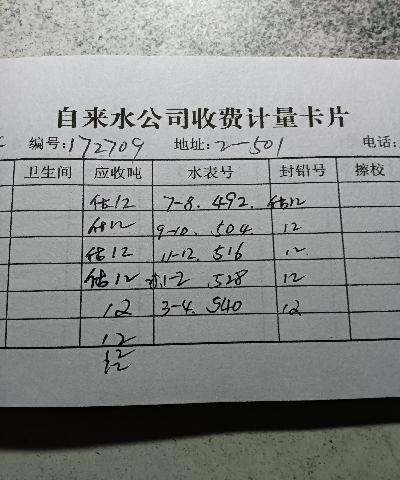 自来水公司收费计量卡片
编号:172709 地址:2-501 电话:
卫生间 应收吨 水表号 封铅号 擦校
估12 7-8. 492. 估12
估12 9-10. 504. 12
估12 11-12. 516 12
估12 1-2 528 12
12 3-4. 540 12
12
12
12